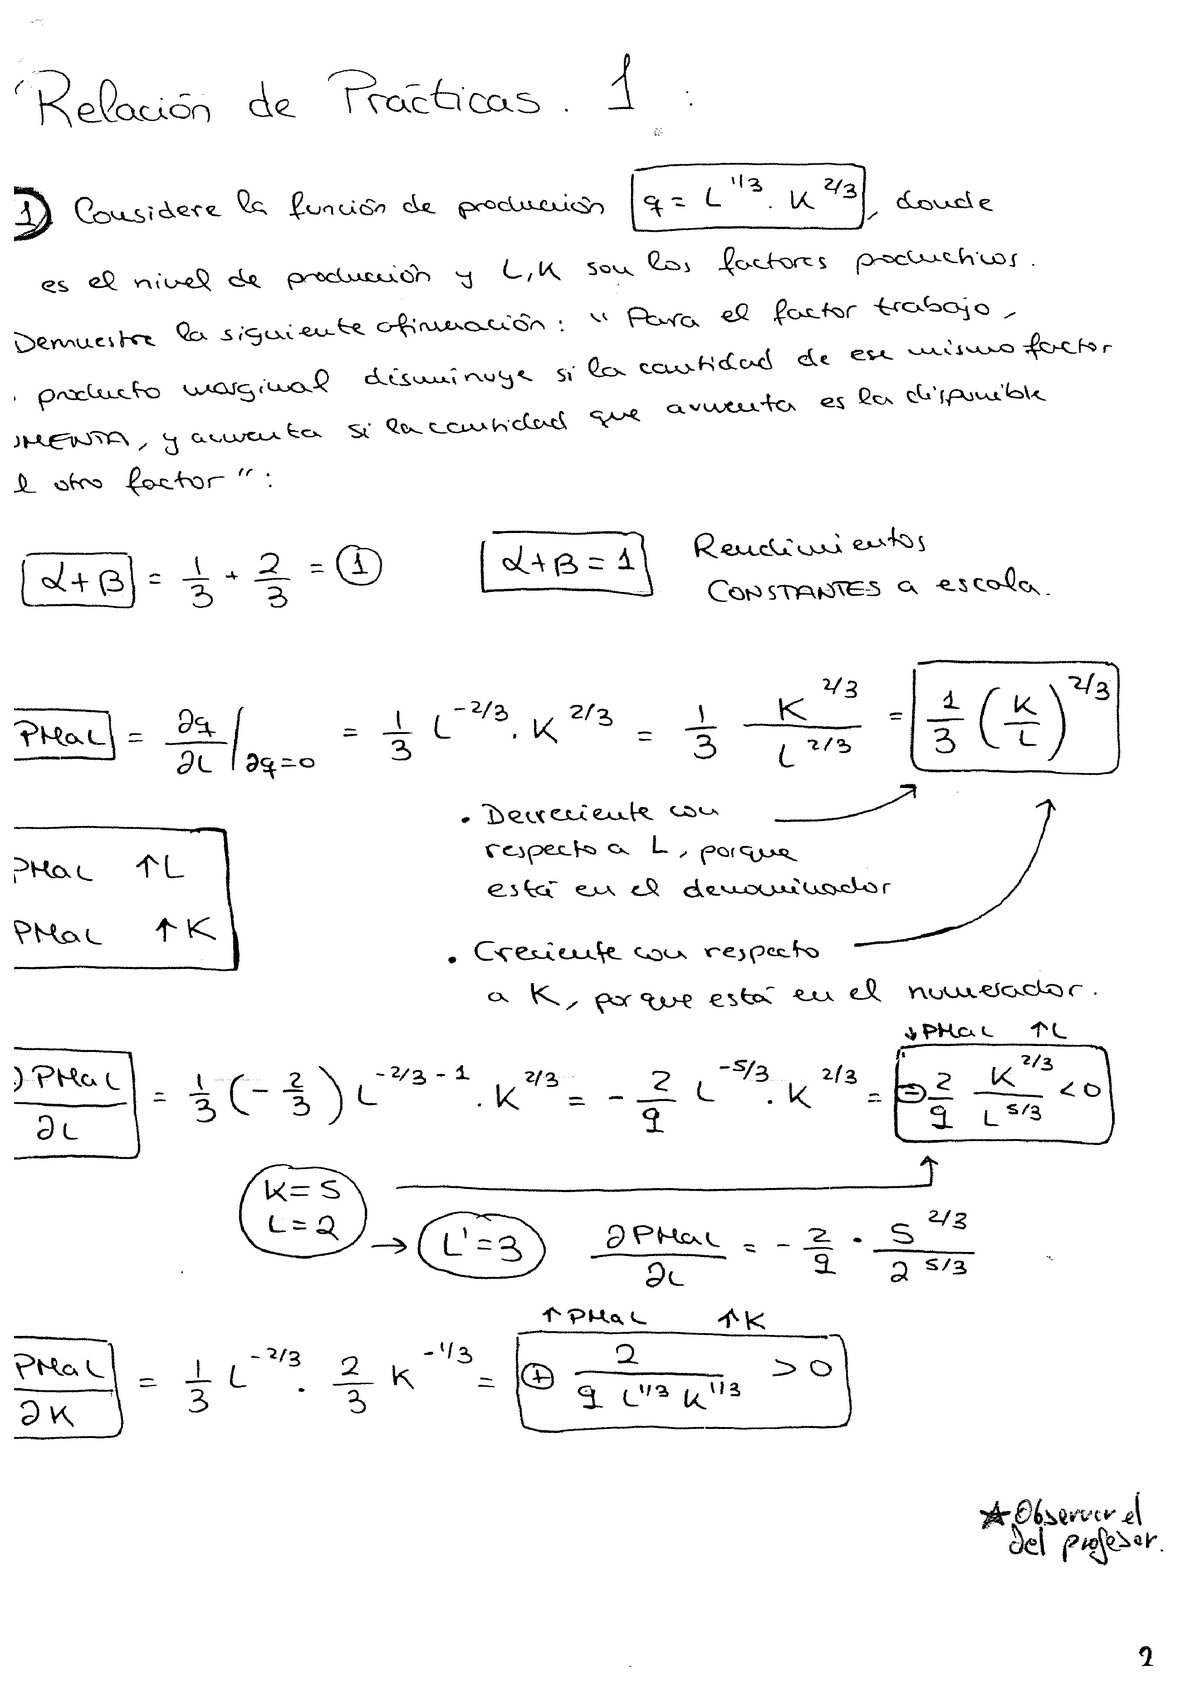 Relación de Prácticas. 1 :
1) Considere la función de producción q = L^1/3 . K^2/3, donde
es el nivel de producción y L, K son los factores productivos.
Demuestre la siguiente afirmación: " Para el factor trabajo,
producto marginal disminuye si la cantidad de ese mismo factor
UMENTA, y aumenta si la cantidad que aumenta es la disponible
l otro factor ":
α+β = 1/3 + 2/3 = 1
α+β = 1 Rendimientos
CONSTANTES a escala.
PMaL = ∂q/∂L |∂q=0 = 1/3 L^-2/3 . K^2/3 = 1/3 K^2/3 / L^2/3 = 1/3 (K/L)^2/3
• Decreciente con
respecto a L, porque
está en el denominador
PMaL ↑L
PMaL ↑K
• Creciente con respecto
a K, porque está en el numerador.
↓PMaL ↑L
∂PMaL/∂L = 1/3 (-2/3) L^-2/3-1 . K^2/3 = -2/9 L^-5/3 . K^2/3 = ⊖ 2/9 K^2/3 / L^5/3 < 0
K=5
L=2 → L'=3 ∂PMaL/∂L = -2/9 · 5^2/3 / 2^5/3
↑PMaL ↑K
PMaL/∂K = 1/3 L^-2/3 . 2/3 K^-1/3 = ⊕ 2 / 9 L^1/3 K^1/3 > 0
★ Observar el
del profesor.
2